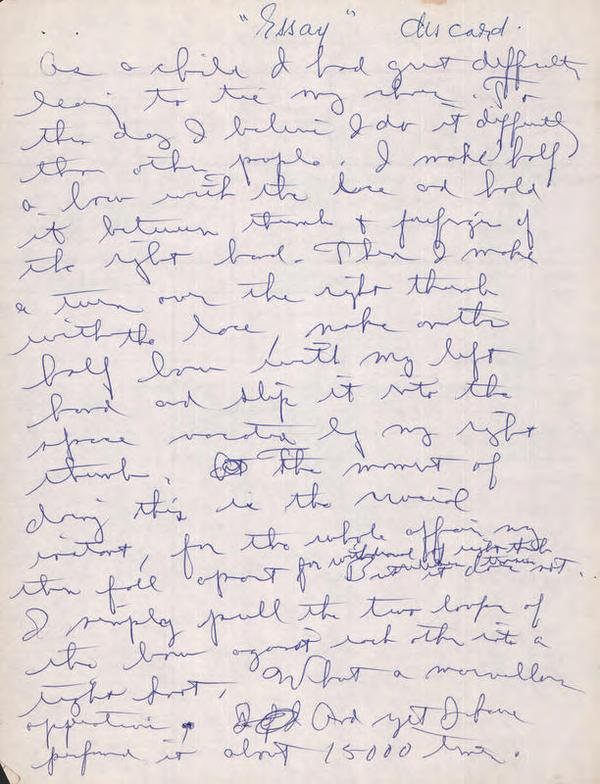 "Essay" discard.
As a child I had great difficulty
learning to tie my shoes. To
this day I believe I do it differently
than other people. I make half
a bow with the lace and hold
it between thumb & forefinger of
the right hand. Then I make
a turn over the right thumb
with the lace, make another
half bow with my left
hand and slip it into the
space vacated by my right
thumb. The moment of
doing this is the crucial
instant, for the whole affair may
then fall apart for withdrawal of right thumb
But it does not.
I simply pull the two loops of
the bow against each other into a
tight knot. What a marvellous
operation. And yet I have
performed it about 15000 times.